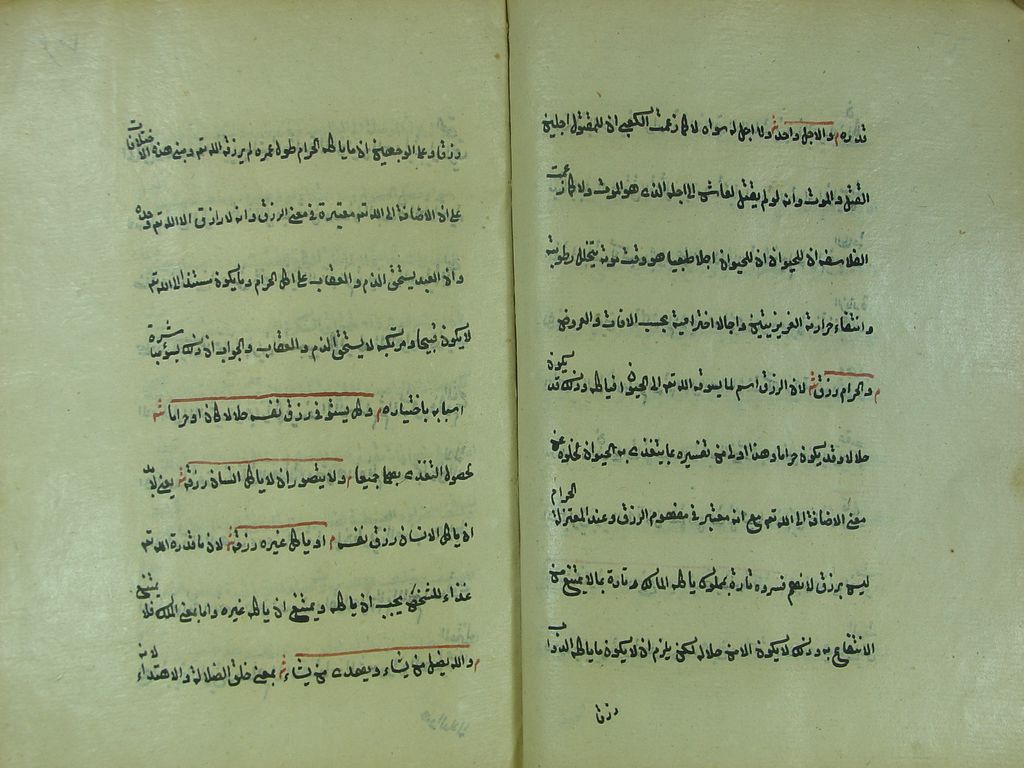 قدره م والاجل واحد ش ولا اجل له سواه لا كما زعمت الكعبى ان للمقتول اجلين
القتل والموت وانه لو لم يقتل لعاش الى اجله الذى هو الموت ولا كما زعمت
الفلاسفة ان للحيوان اجلا طبعيا هو وقت موته بتحلل رطوبته
وانتفاء حرارته الغريزيتين واجالا اخترامية بحسب الافات والامراض
م والحرام رزق ش لان الرزق اسم لما يسوقه الله تع الى الحيوان فياكله وذلك قد يكون
حلالا وقد يكون حراما وهذا اولى من تفسيره بما يتغذى به الحيوان لخلوه عن
معنى الاضافة الى الله تع مع انه معتبر فى مفهوم الرزق وعند المعتزلة الحرام
ليس برزق لانهم فسروه تارة بمملوك ياكله المالك وتارة بما لا يمتنع من
الانتفاع به وذلك لا يكون الا من حلال لكن يلزم ان لا يكون ما ياكله الدواب
رزقا
رزقا وعلى الوجهين ان ما ياكله الحرام طول عمره لم يرزقه الله تع ومبنى هذه الاختلافات
على ان الاضافة الى الله تع معتبرة فى معنى الرزق وانه لا رازق الا الله تع وحده
وان العبد يستحق الذم والعقاب على اكل الحرام وما يكون مستندا الى الله تع
لا يكون قبيحا ومرتكبه لا يستحق الذم والعقاب والجواب ان ذلك لسوء مباشرة
اسبابه باختياره م وكل يستوفى رزق نفسه حلالا كان او حراما ش
لحصول التغذى بهما جميعا م ولا يتصور ان لا ياكل انسان رزقه ش يعنى بلا
ان ياكل الانسان رزق نفسه م او ياكل غيره رزقه ش لان ما قدره الله تع
غذاء للشخص يجب ان ياكله ويمتنع ان ياكله غيره واما بمعنى الملك فلا يمتنع
م والله يضل من يشاء ويهدى من يشاء ش بمعنى خلق الضلالة والاهتداء لانه